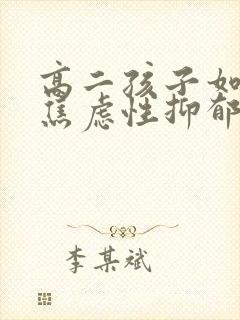 高二孩子如
焦虑性抑郁
李某斌